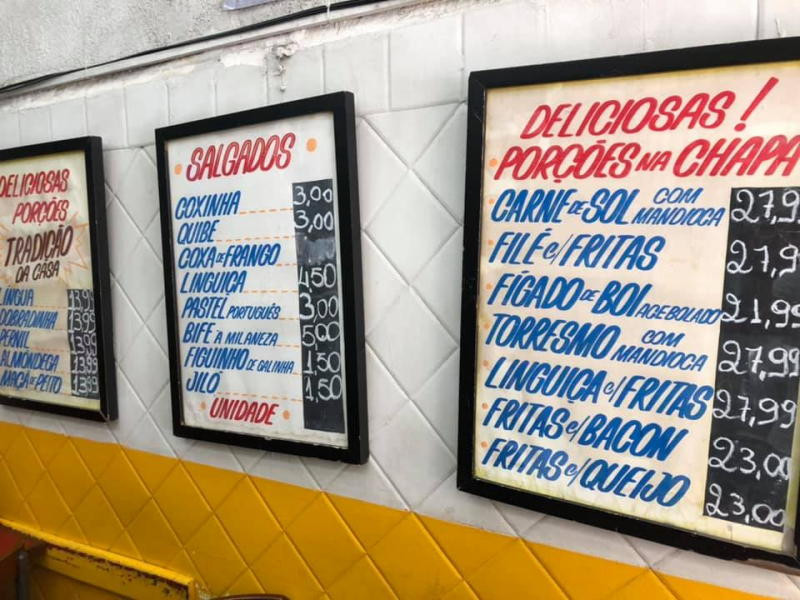 DELICIOSAS
PORÇÕES
TRADIÇÃO
DA CASA
LINGUA 13,99
DOBRADINHA 13,99
PERNIL 13,99
ALMÔNDEGA 13,99
MAÇA DE PEITO 13,99
SALGADOS
COXINHA 3,00
QUIBE 3,00
COXA DE FRANGO
LINGUIÇA 4,50
PASTEL PORTUGUÊS 3,00
BIFE À MILANEZA 5,00
FIGUINHO DE GALINHA 1,50
JILÓ 1,50
UNIDADE
DELICIOSAS!
PORÇÕES NA CHAPA
CARNE DE SOL COM MANDIOCA 27,9
FILÉ C/ FRITAS 27,9
FÍGADO DE BOI ACEBOLADO 21,99
TORRESMO COM MANDIOCA 27,99
LINGUIÇA C/ FRITAS 27,99
FRITAS C/ BACON 23,00
FRITAS C/ QUEIJO 23,00